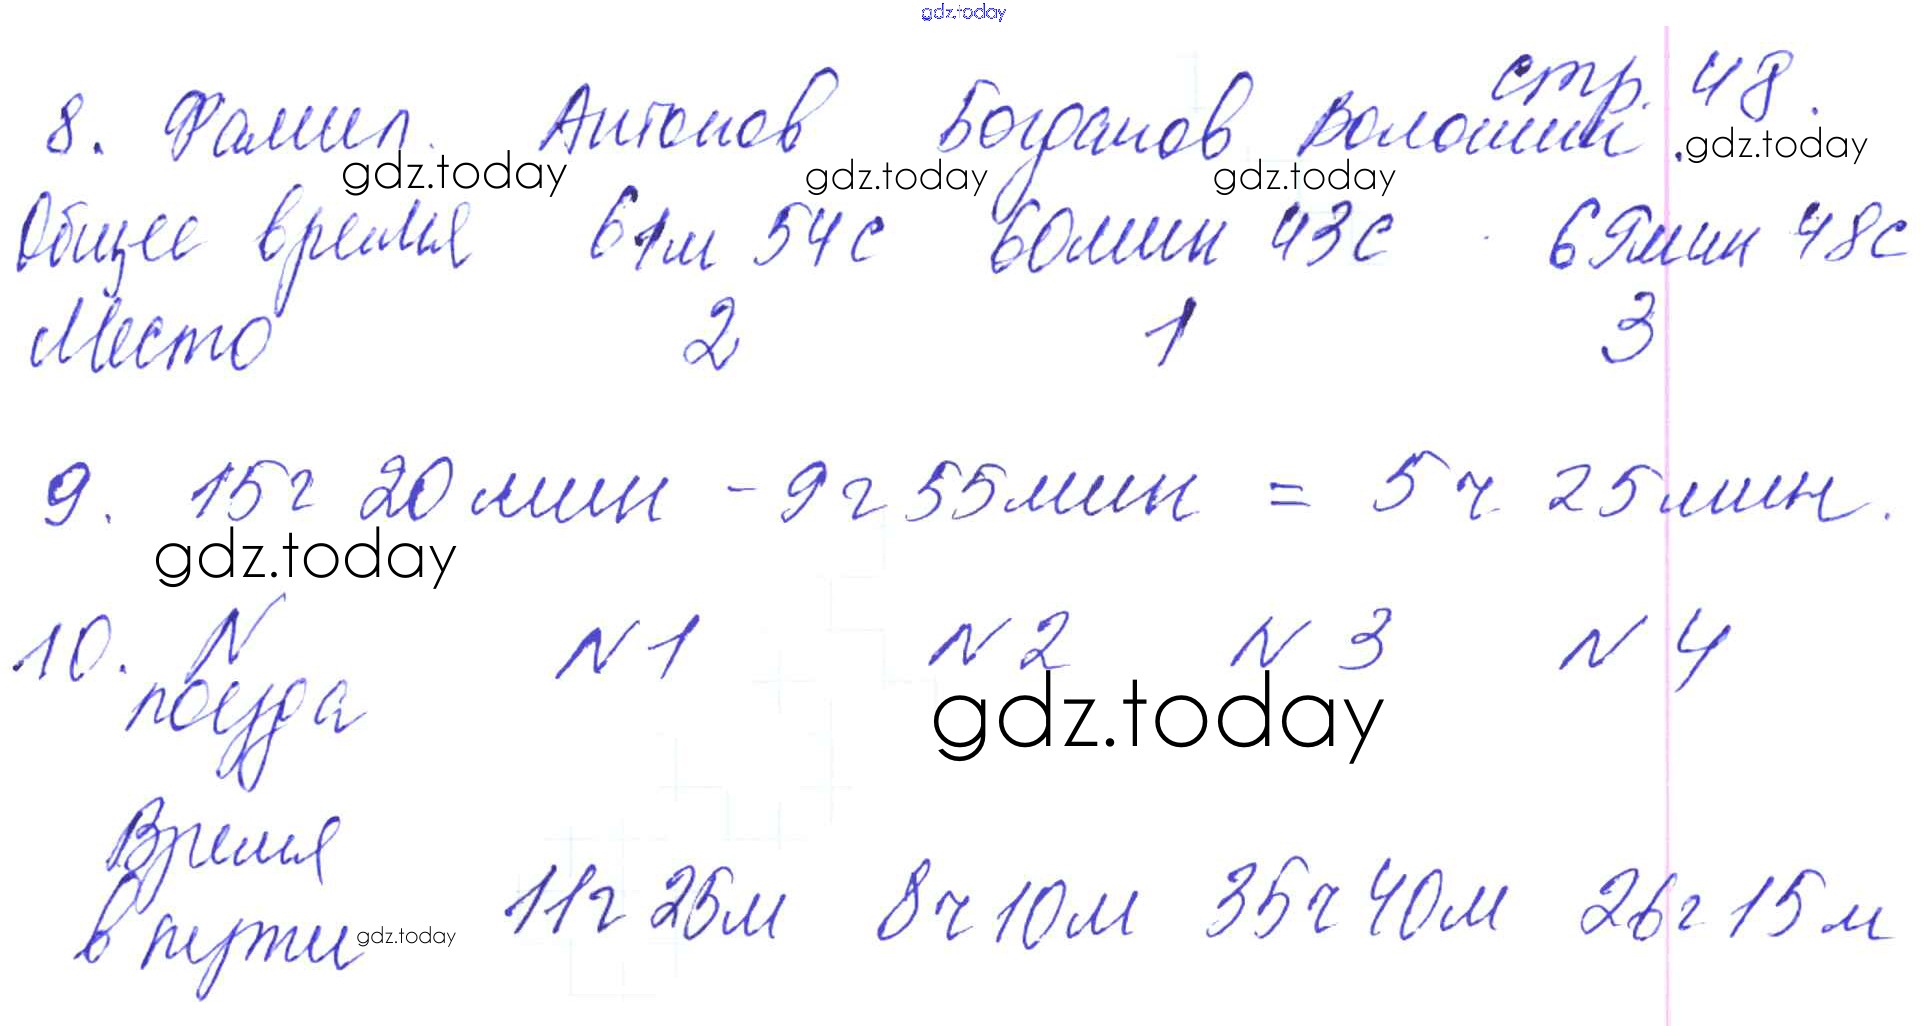 gdz.today
стр. 48.
8. Фамил. Антонов Богданов Волошин.
gdz.today gdz.today gdz.today gdz.today
Общее время 61м 54с 60мин 43с 69мин 48с
Место 2 1 3
9. 15ч 20мин - 9ч 55мин = 5ч 25мин.
gdz.today
10. N поезда N1 N2 N3 N4
gdz.today
Время в пути 11ч 25м 8ч 10м 35ч 40м 26ч 15м
gdz.today